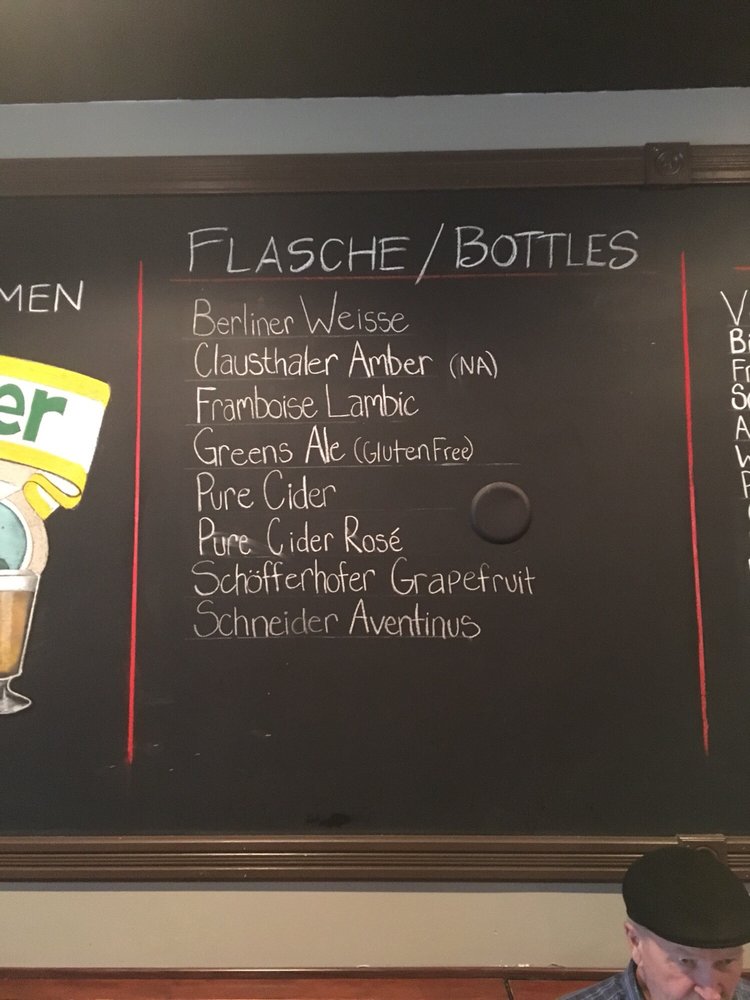 MEN
er
FLASCHE/BOTTLES
Berliner Weisse
Clausthaler Amber (NA)
Framboise Lambic
Greens Ale (Gluten Free)
Pure Cider
Pure Cider Rosé
Schöfferhofer Grapefruit
Schneider Aventinus
V
Bi
Fr
Sc
A
W
P